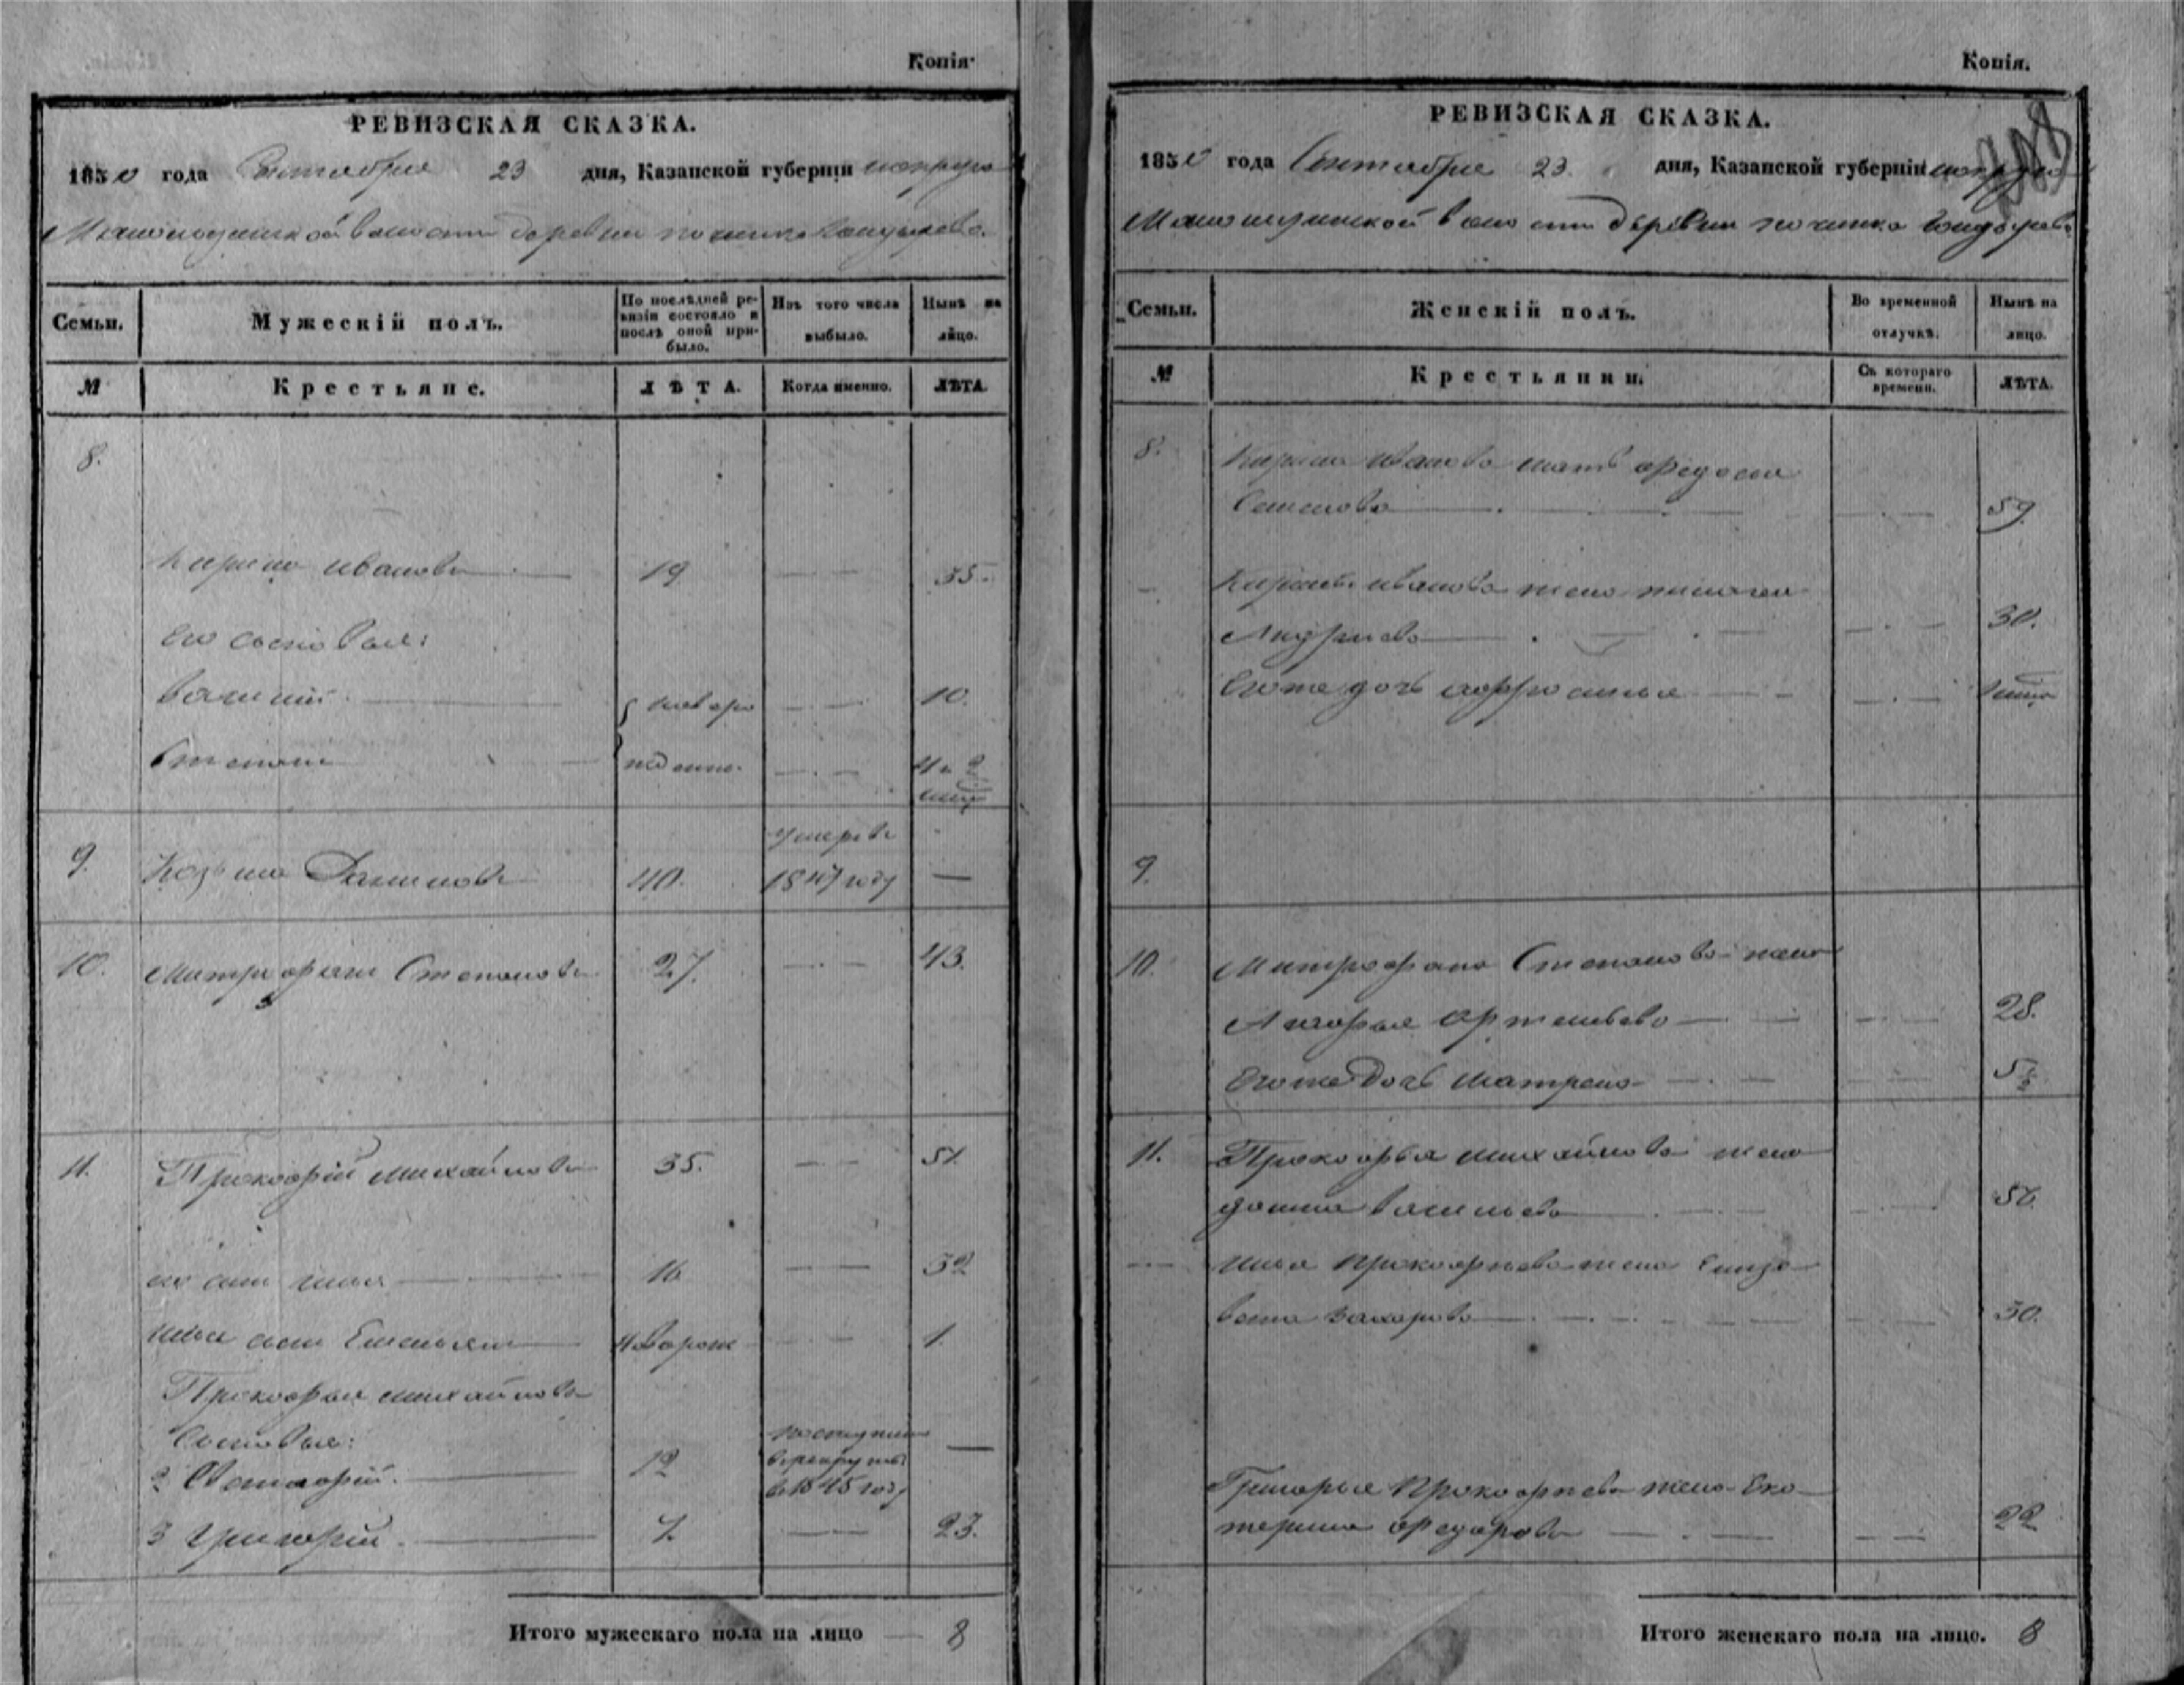 Копія.
РЕВИЗСКАЯ СКАЗКА.
1850 года Сентября 23 дня, Казанской губерніи
волости деревни починка
Семьи.
Мужескій полъ.
По послѣдней ревизіи состояло и послѣ оной прибыло.
Изъ того числа выбыло.
Нынѣ на лицо.
№
Крестьяне.
ЛѢТА.
Когда именно.
ЛѢТА.
8.
Кирила Ивановъ 19 35.
Его сыновья:
Василий новоро 10.
Степанъ жденные 4 и 2
9. Козьма Даниловъ 40. умеръ въ 1847 году
10. Митрофанъ Степановъ 27. 43.
11. Прокофій Михайловъ 35. 51.
его сынъ Илья 16 32
Ильи сынъ Емельянъ новорож 1.
Прокофья Михайлова
Сыновья:
2 Евстафій. 12 поступилъ в рекруты в 1845 году
3 Григорій. 7. 23.
Итого мужескаго пола на лицо 8
Копія.
РЕВИЗСКАЯ СКАЗКА.
1850 года Сентября 23. дня, Казанской губерніи
волости деревни починка
Семьи.
Женскій полъ.
Во временной отлучкѣ.
Нынѣ на лицо.
№
Крестьянки.
Съ котораго времени.
ЛѢТА.
8. Кирила Иванова мать Федосья
Семенова 59.
Кирилы Иванова жена
Андреева 30.
Его же дочь Афросинья
9.
10. Митрофана Степанова жена
Артемьева 28.
Его же дочь Матрена 5½
11. Прокофья Михайлова жена
Васильева
Ильи Прокофьева жена Елиза
вета Захарова 30.
Григорья Прокофьева жена Ека
терина Федорова 22
Итого женскаго пола на лицо. 8